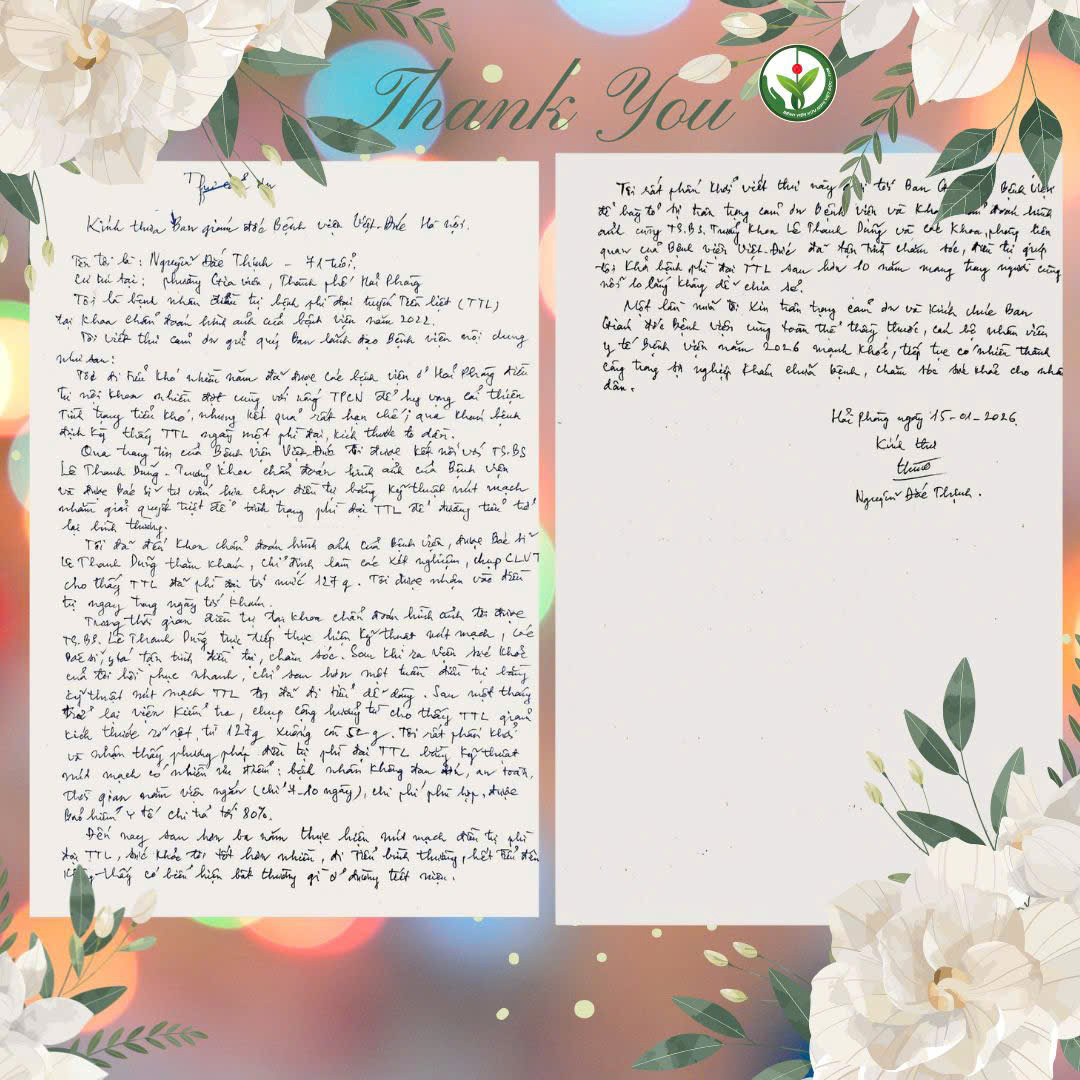 Thank You
BỆNH VIỆN HỮU NGHỊ VIỆT ĐỨC
Kính thưa Ban giám đốc Bệnh viện Việt-Đức Hà nội.
Tên tôi là: Nguyễn Đắc Thịnh - 71 tuổi.
Cư trú tại: phường Gia viên, Thành phố Hải Phòng
Tôi là bệnh nhân điều trị bệnh phì đại tuyến Tiền liệt (TTL)
tại Khoa chẩn đoán hình ảnh của bệnh viện năm 2022.
Tôi viết thư cảm ơn gửi quý Ban lãnh đạo Bệnh viện với nội dung
như sau:
Tôi đi tiểu khó nhiều năm đã được các bệnh viện ở Hải Phòng điều
trị nội khoa nhiều đợt cùng với uống TPCN để hy vọng cải thiện
tình trạng tiểu khó, nhưng kết quả rất hạn chế; qua khám bệnh
định kỳ thấy TTL ngày một phì đại, kích thước to dần.
Qua trang tin của Bệnh viện Việt-Đức tôi được kết nối với TS.BS
Lê Thanh Dũng. Trưởng khoa chẩn đoán hình ảnh của Bệnh viện
và được Bác sĩ tư vấn lựa chọn điều trị bằng kỹ thuật nút mạch
nhằm giải quyết triệt để tình trạng phì đại TTL để đường tiểu trở
lại bình thường.
Tôi đã đến Khoa chẩn đoán hình ảnh của Bệnh viện, được Bác sĩ
Lê Thanh Dũng thăm khám, chỉ định làm các xét nghiệm, chụp CLVT
cho thấy TTL đã phì đại tới mức 127g. Tôi được nhận vào điều
trị ngay trong ngày tới khám.
Trong thời gian điều trị tại khoa chẩn đoán hình ảnh tôi được
TS.BS. Lê Thanh Dũng trực tiếp thực hiện kỹ thuật nút mạch, các
bác sĩ, y tá tận tình điều trị, chăm sóc. Sau khi ra viện sức khỏe
của tôi hồi phục nhanh, chỉ sau hơn một tuần điều trị bằng
kỹ thuật nút mạch TTL tôi đã đi tiểu dễ dàng. Sau một tháng
trở lại viện kiểm tra, chụp cộng hưởng từ cho thấy TTL giảm
kích thước rõ rệt, từ 127g xuống còn 52g. Tôi rất phấn khởi
và nhận thấy phương pháp điều trị phì đại TTL bằng kỹ thuật
nút mạch có nhiều ưu điểm: bệnh nhân không đau đớn, an toàn,
thời gian nằm viện ngắn (chỉ 7-10 ngày), chi phí phù hợp, được
Bảo hiểm y tế chi trả tới 80%.
Đến nay sau hơn ba năm thực hiện nút mạch điều trị phì
đại TTL, sức khỏe tôi tốt hơn nhiều, đi tiểu bình thường, hết tiểu đêm
thấy có biểu hiện bất thường gì ở đường tiết niệu.
Tôi rất phấn khởi viết thư này tới Ban Bệnh viện
để bày tỏ sự trân trọng cảm ơn Bệnh viện và Khoa đoán hình
ảnh cùng TS.BS. Trưởng khoa Lê Thanh Dũng và các Khoa, phòng liên
quan của Bệnh viện Việt-Đức đã tận tình chăm sóc, điều trị giúp
tôi khỏi bệnh phì đại TTL sau hơn 10 năm mang trong người cùng
nỗi lo lắng không dễ chia sẻ.
Một lần nữa tôi xin trân trọng cảm ơn và kính chúc Ban
Giám đốc Bệnh viện cùng toàn thể thầy thuốc, cán bộ nhân viên
y tế Bệnh viện năm 2026 mạnh khỏe, tiếp tục có nhiều thành
công trong sự nghiệp khám chữa bệnh, chăm sóc sức khỏe cho nhân
dân.
Hải Phòng ngày 15-01-2026
Kính thư
Nguyễn Đắc Thịnh.